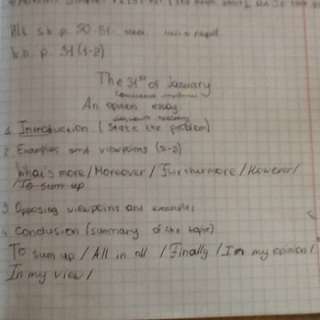 H/t s.b. p. 50-51
w.b. p. 31 (1-2)
The 31st of January
An opinion essay
1. Introduction (State the problem)
2. Examples and viewpoints (2-3)
What's more / Moreover / Furthermore / However /
To sum up
3 Opposing viewpoints and examples
4 Conclusion (summary of the topic)
To sum up / All in all / Finally / In my opinion /
In my view /